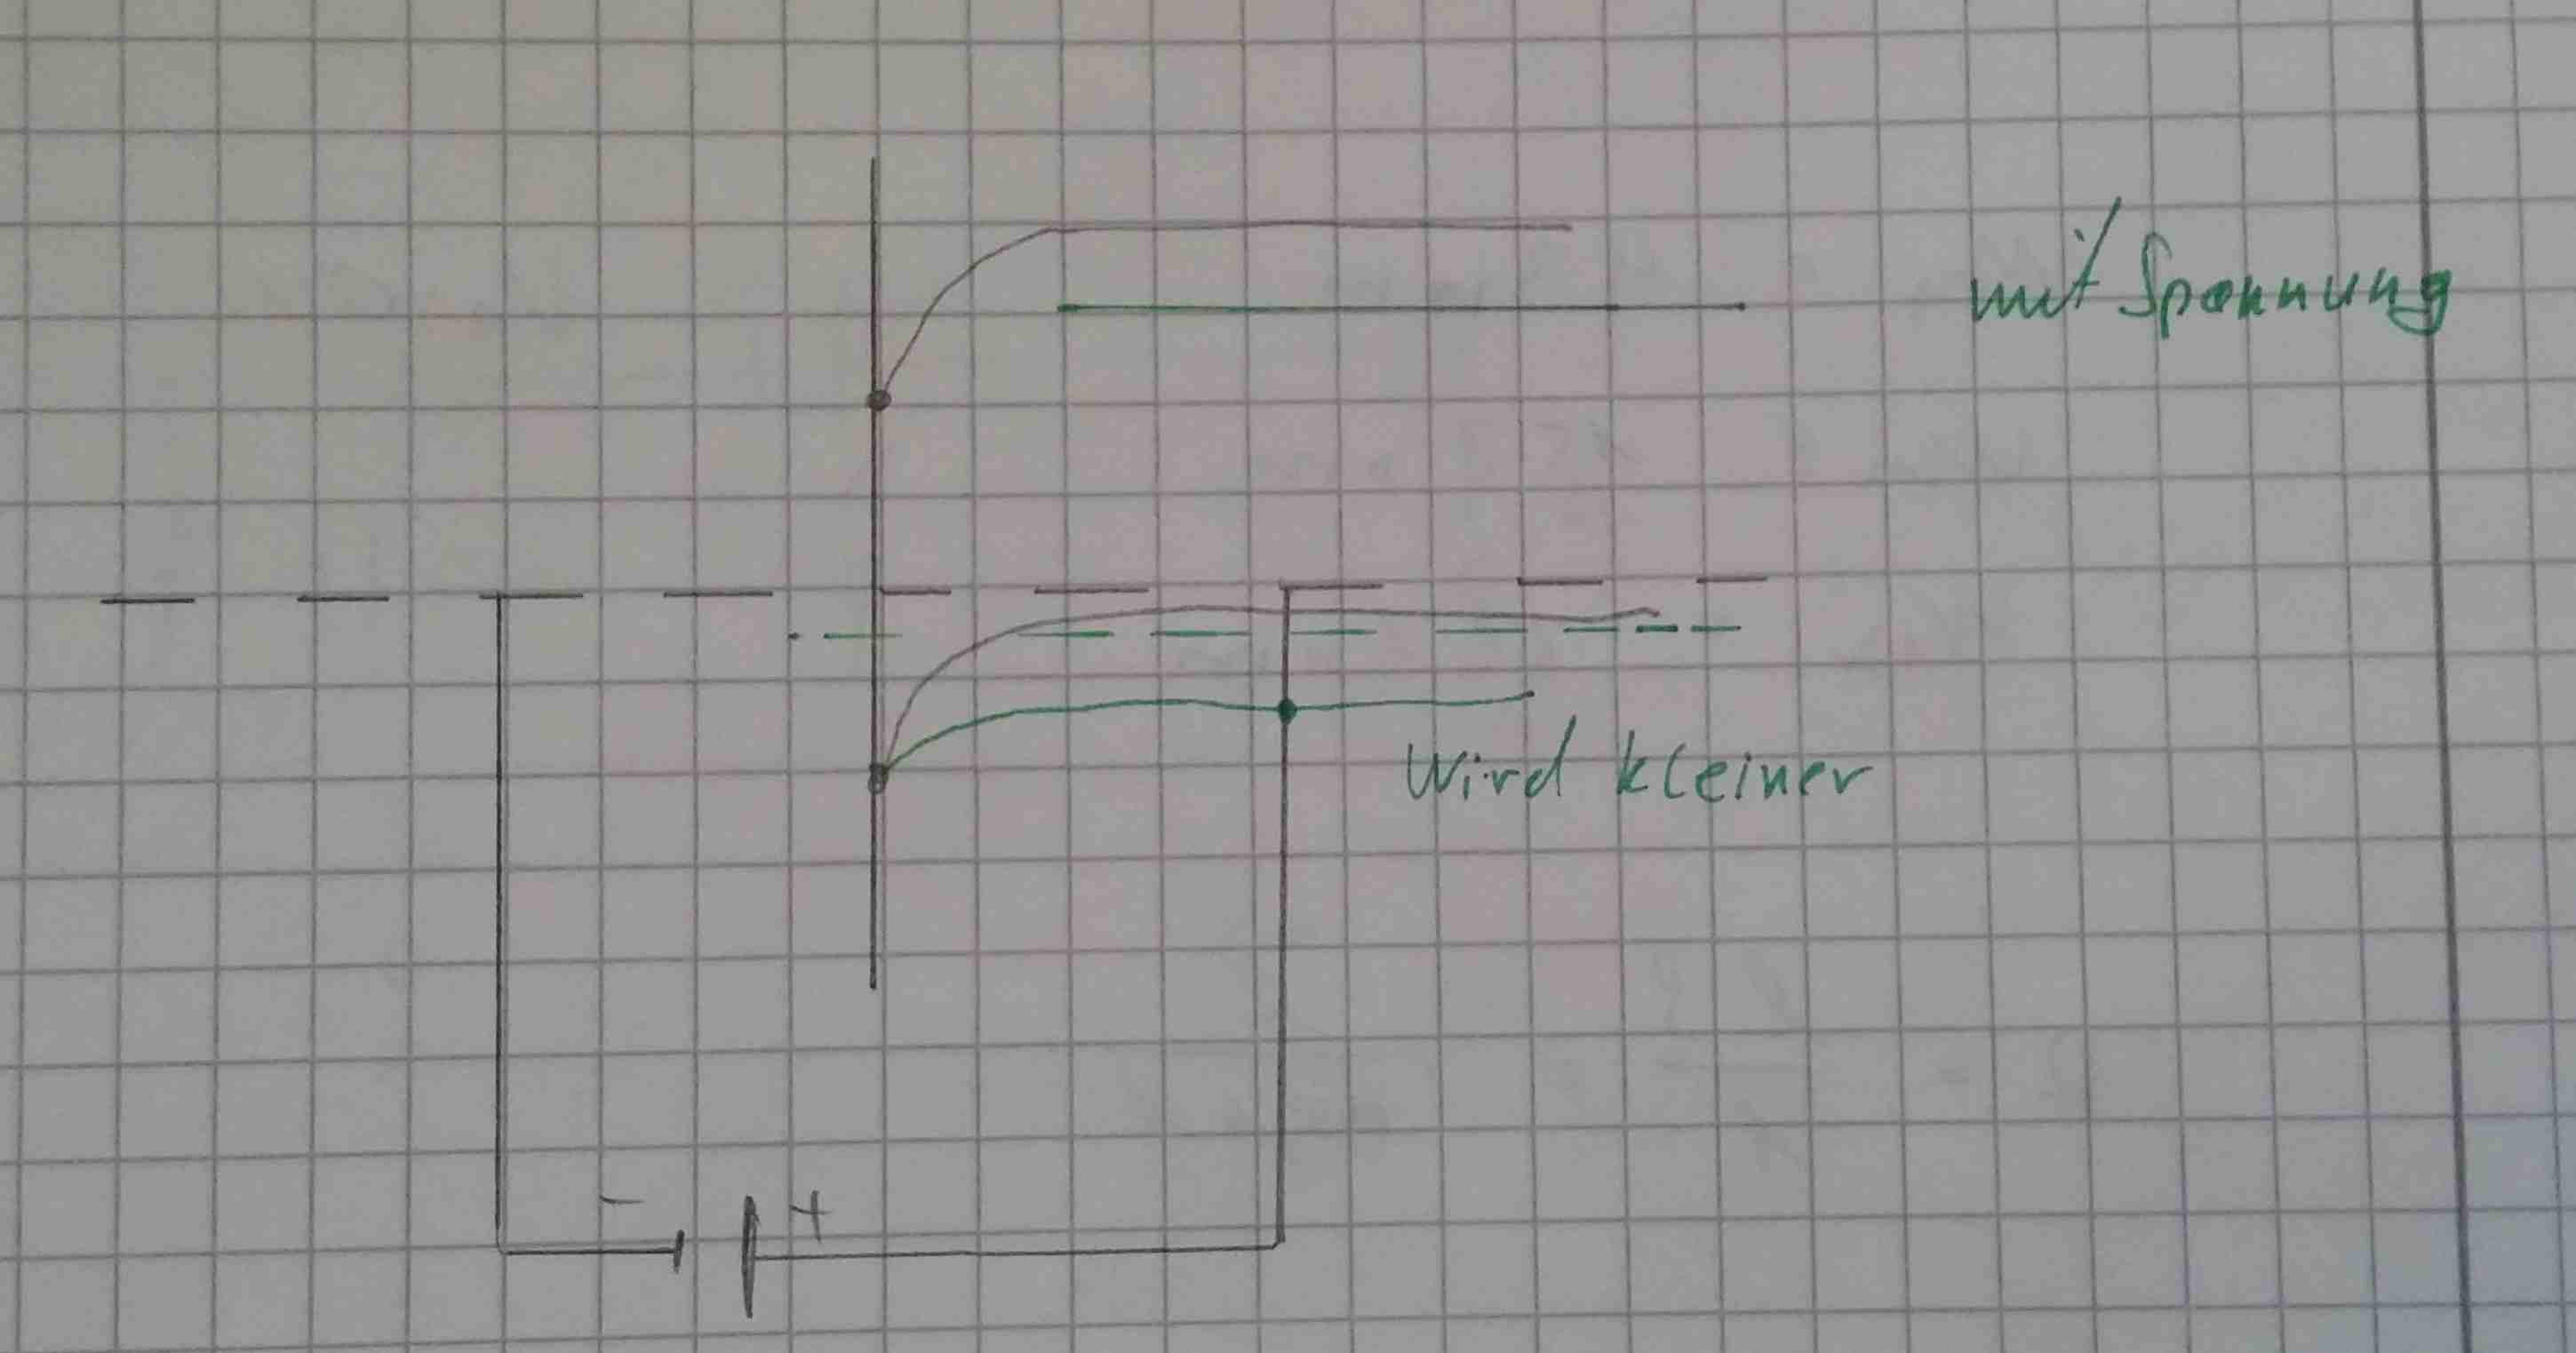 mit Spannung
Wird kleiner
- +